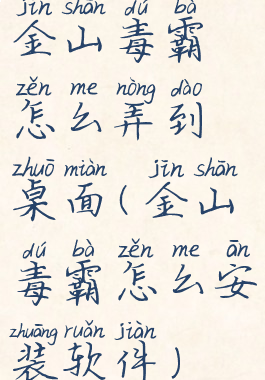 jīn shān dú bà
金山毒霸
zěn me nòng dào
怎么弄到
zhuō miàn jīn shān
桌面(金山
dú bà zěn me ān
毒霸怎么安
zhuāng ruǎn jiàn
装软件)